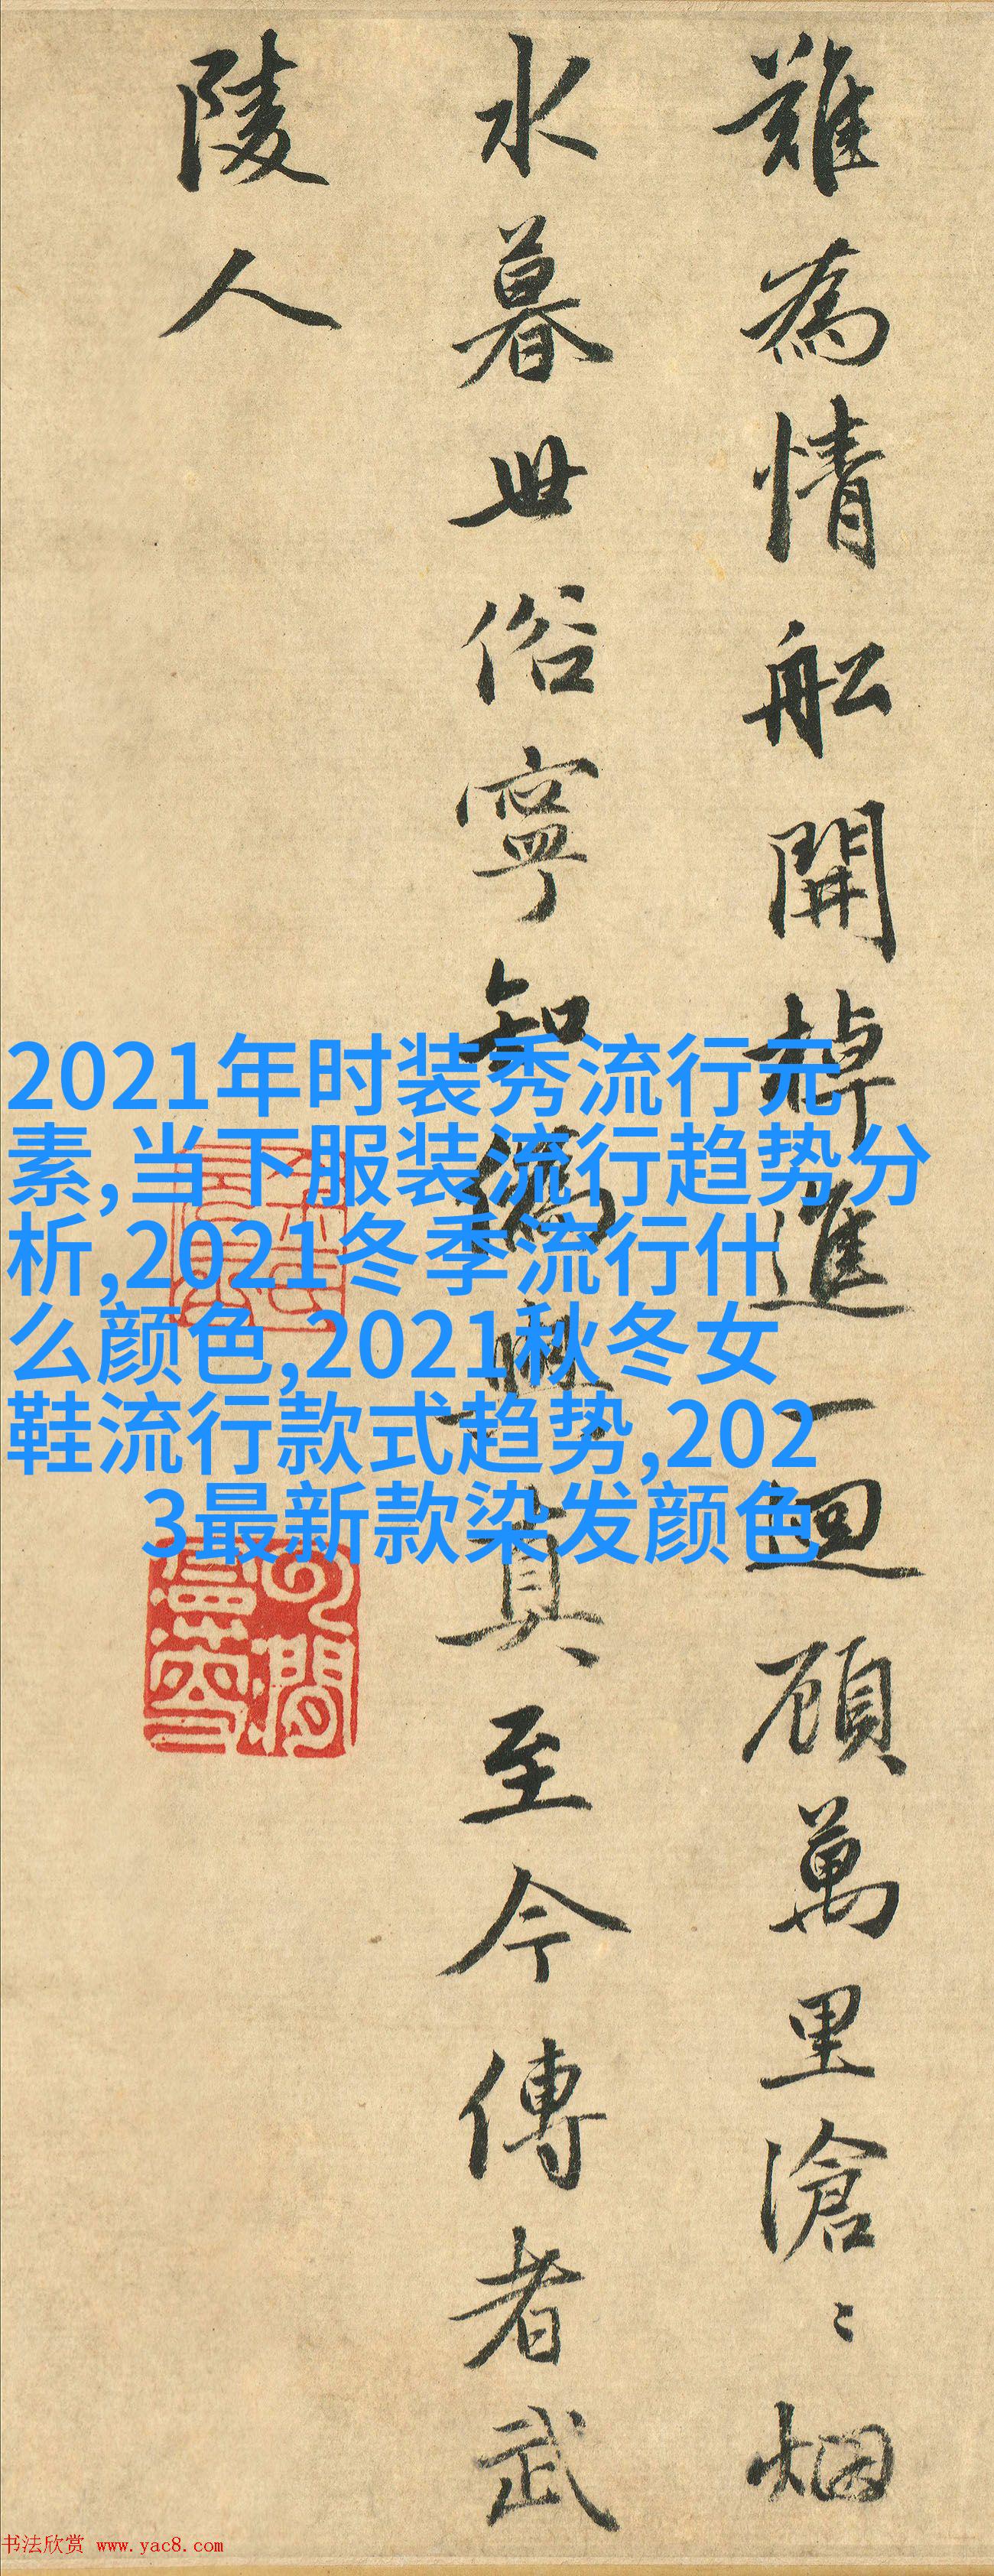 難為情船開棹進一迴顧萬里滄〻烟
水暮世俗寧知偽與真至今傳者武
陵人
2021年时装秀流行元
素,当下服装流行趋势分
析,2021冬季流行什
么颜色,2021秋冬女
鞋流行款式趋势,202
3最新款染发颜色
书法欣赏 www.yac8.com